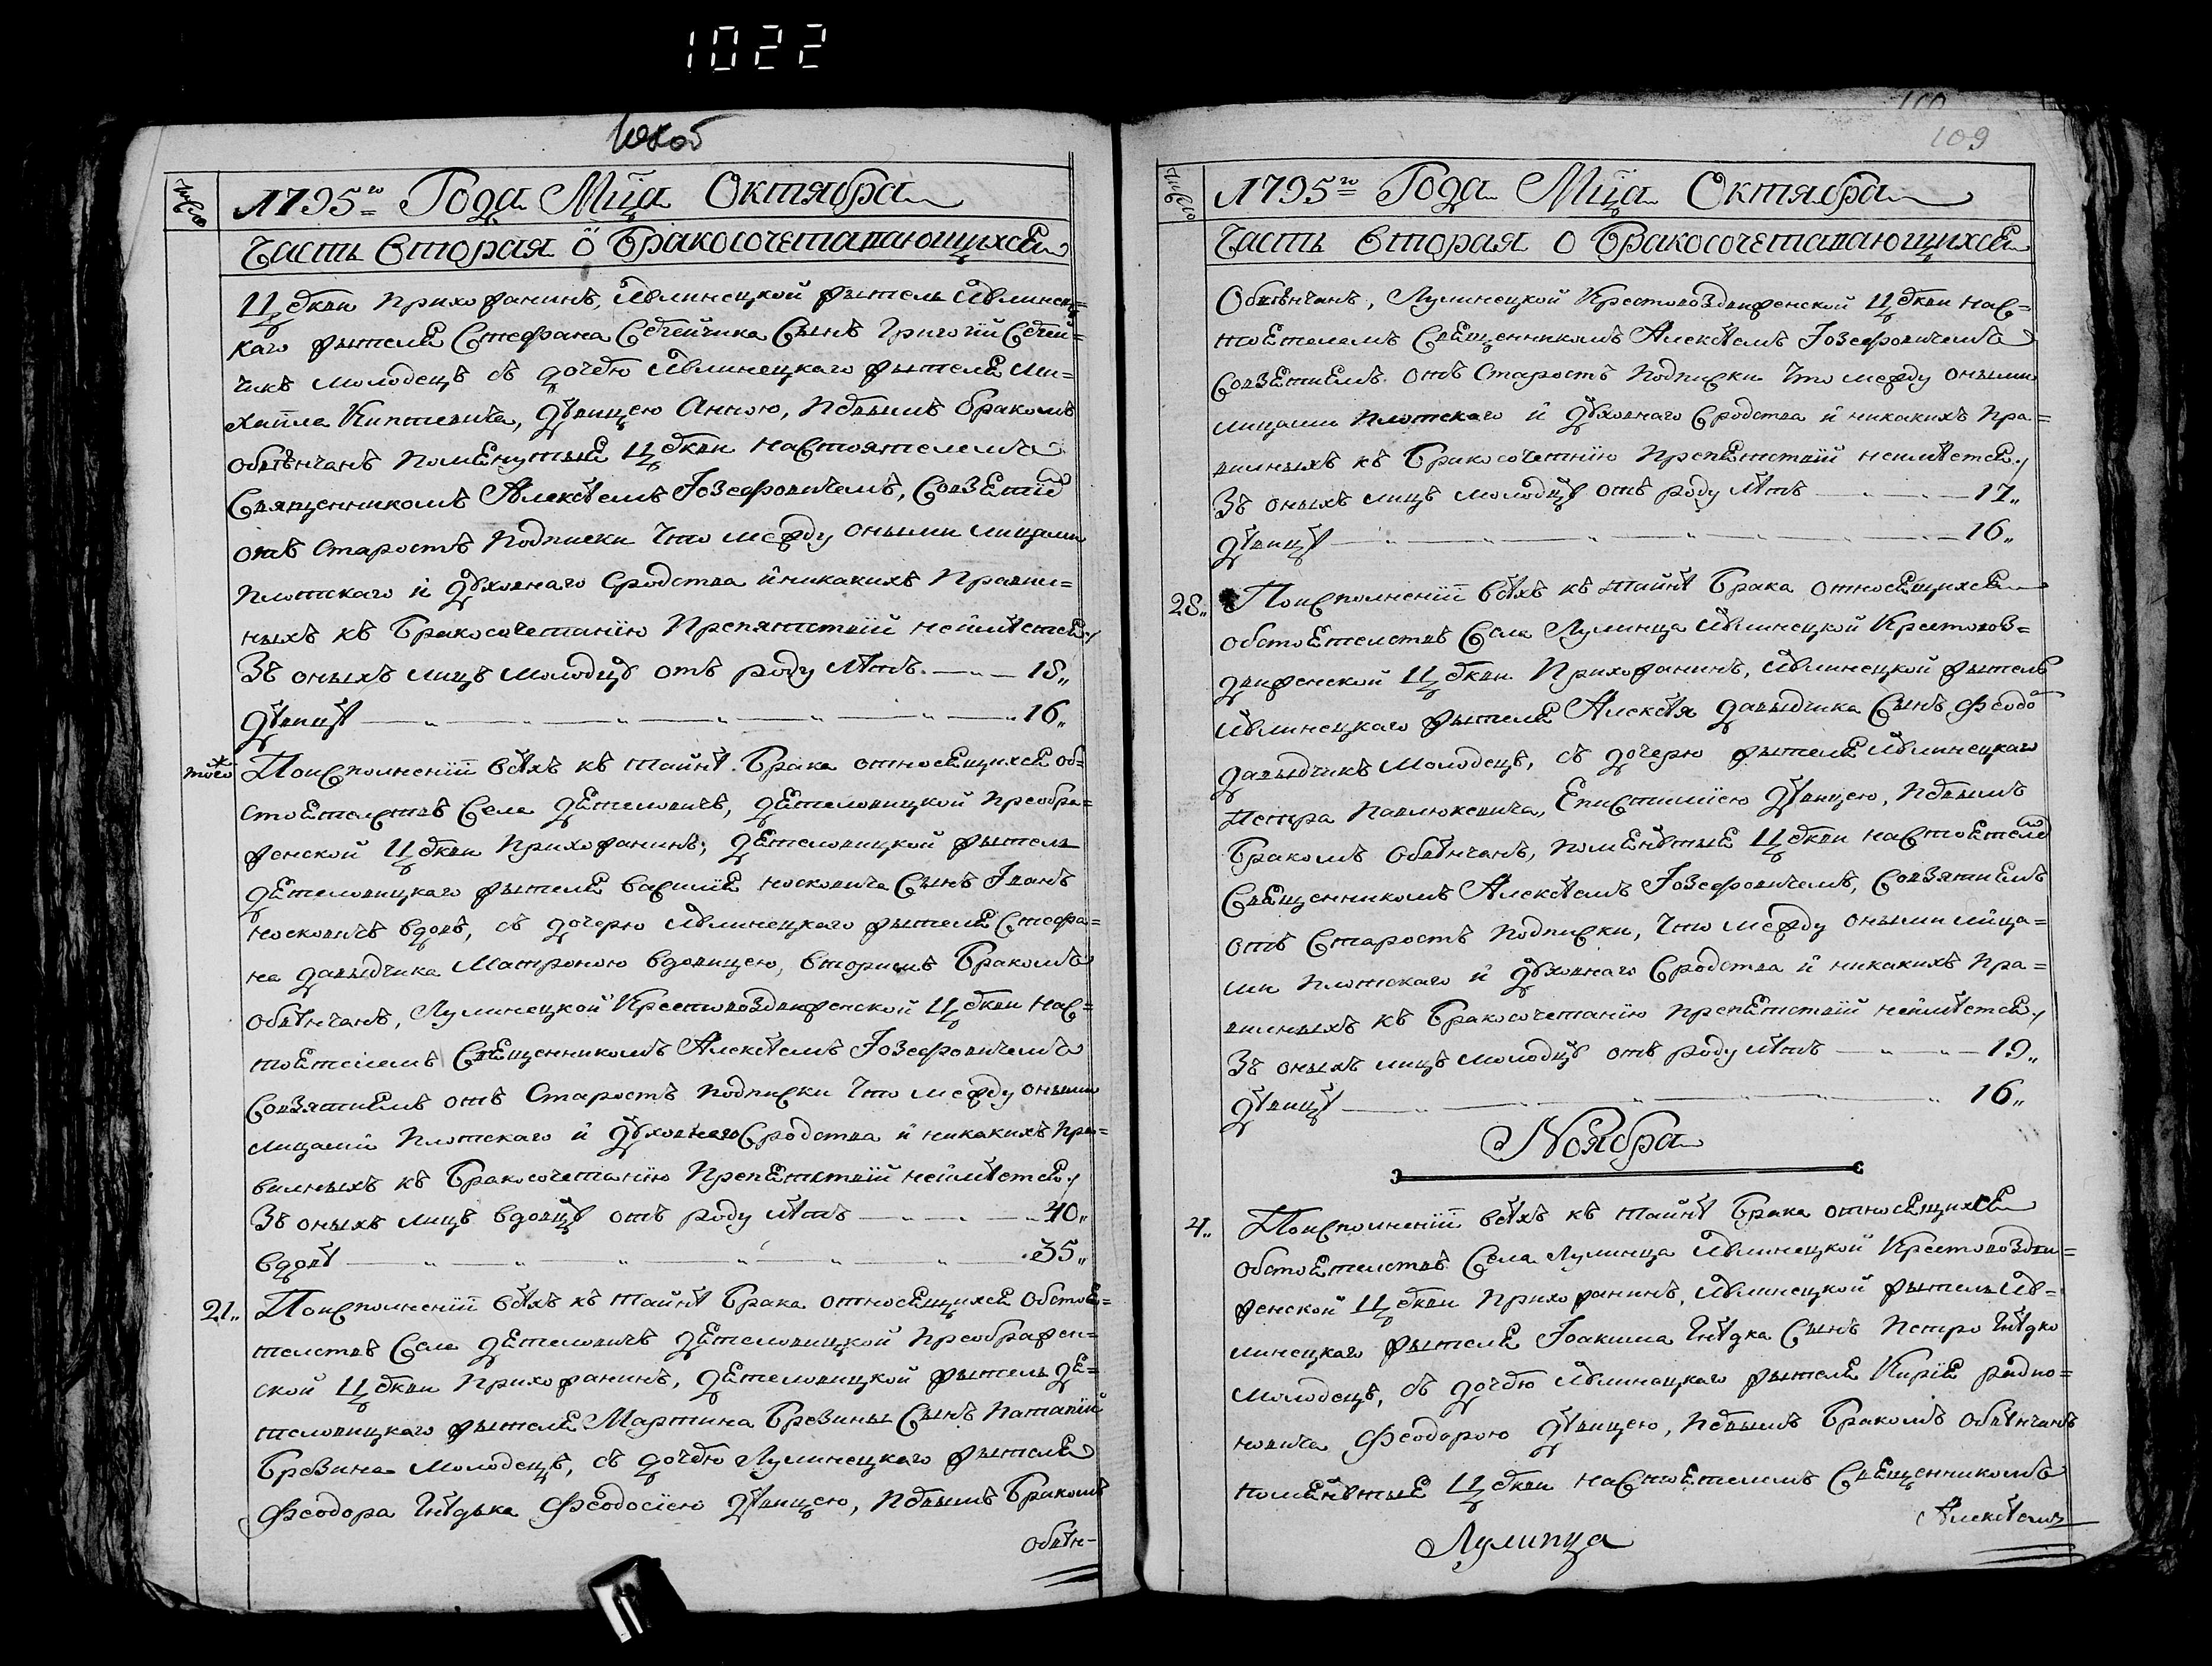 1022
109
число
1795го Года Мца Октября
Часть вторая о бракосочетавающихся
Цркви прихожанинъ, Лулинецкой житель Лулинец=
каго жителя Стефана Сечейчика сынъ Григорій Сечей=
чикъ молодецъ съ дочерю Лулинецкаго жителя Ми=
хаила Киптевича, дѣвицею Анною, первымъ бракомъ
обвѣнчанъ помянутыя Цркви настоятелемъ
Священникомъ Алексѣемъ Іозефовичемъ, совзятіем
отъ старостъ подписки что между оными лицами
плотскаго и духовнаго сродства и никакихъ правил=
ныхъ къ бракосочетанію препятствій неимѣется /
Зъ оныхъ лицъ молодцу отъ роду лѣтъ 18„
дѣвицѣ 16„
того ж По исполненіи всѣхъ къ тайнѣ брака относящихся об=
стоятелствъ села Дятеловичъ, Дятеловицкой Преобра=
женской Цркви прихожанинъ, Дятеловицкой житель
Дятеловицкаго жителя Василія Носковича сынъ Іванъ
Носковичъ вдовъ, съ дочерю Лулинецкаго жителя Стефа=
на Давыдчика Матроною вдовицею, вторимъ бракомъ
обвѣнчанъ, Лулинецкой Крестовоздвиженской Цркви нас=
тоятелемъ Священникомъ Алексѣемъ Іозефовичемъ
Совзятиемъ отъ старостъ подписки что между оными
лицами плотскаго и духовнаго сродства и никакихъ пра=
вилныхъ къ бракосочетанію препятствій неимѣется /
Зъ оныхъ лицъ вдовцу отъ роду лѣтъ 40„
вдовѣ 35„
21„ По исполненіи всѣхъ къ тайнѣ брака относящихся обстоя=
телствъ села Дятеловичъ Дятеловицкой Преображен=
ской Цркви прихожанинъ, Дятеловицкой житель Дя=
теловицкаго жителя Мартина Брезины сынъ Патапій
Брезина молодецъ, съ дочерю Лулинецкаго жителя
Феодора Гнѣдька Феодосіею дѣвицею, первымъ бракомъ
обвѣн-
число
1795го Года Мца Октября
Часть вторая о бракосочетавающихся
Обвѣнчанъ, Лулинецкой Крестовоздвиженской Цркви нас=
тоятелемъ Священникомъ Алексѣемъ Іозефовичемъ
Совзятиемъ отъ старостъ подписки что между оными
лицами плотскаго и духовнаго сродства и никакихъ пра=
вилныхъ къ бракосочетанію препятствій неимѣется /
Зъ оныхъ лицъ молодцу отъ роду лѣтъ 17„
дѣвицѣ 16„
28„ По исполненіи всѣхъ къ тайнѣ брака относящихся
обстоятелствъ села Лулинца Лулинецкой Крестовоз=
движенской Цркви прихожанинъ, Лулинецкой житель
Лулинецкаго жителя Алексѣя Давыдчика сынъ Феодо
Давыдчикъ молодецъ, съ дочерю жителя Лулинецкаго
Петра Павлюкевича, Епистиміею дѣвицею, первымъ
бракомъ обвѣнчанъ, помянутыя Цркви настоятелем
Священникомъ Алексѣемъ Іозефовичемъ, совзятиемъ
отъ старостъ подписки, что между оными лица=
ми плотскаго и духовнаго сродства и никакихъ пра=
вилныхъ къ бракосочетанію препятствій неимѣется /
Зъ оныхъ лицъ молодцу отъ роду лѣтъ 19„
дѣвицѣ 16„
Ноября
4„ По исполненіи всѣхъ къ тайнѣ брака относящихся
обстоятелствъ села Лулинца Лулинецкой Крестовоздви=
женской Цркви прихожанинъ, Лулинецкой житель Лу=
линецкаго жителя Іоакима Гнѣдка сынъ Петро Гнѣдко
молодецъ, съ дочерю Лулинецкаго жителя Кирія
новича Феодорою дѣвицею, первымъ бракомъ обвѣнчанъ
помянутыя Цркви настоятелемъ Священникомъ
Алексѣемъ
Лулинца